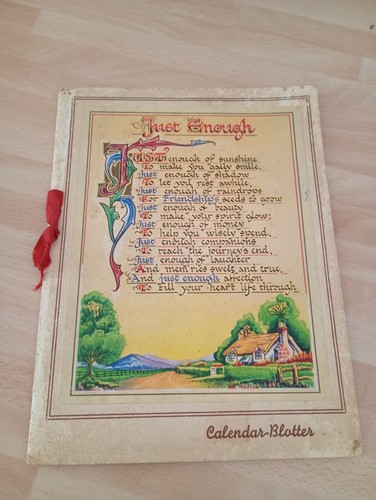 Just Enough
JUST enough of sunshine
To make you gaily smile,
Just enough of shadow
To let you rest awhile,
Just enough of raindrops
For Friendship's seeds to grow
Just enough of beauty
To make your spirit glow;
Just enough of money
To help you wisely spend,
Just enough companions
To reach the journey's end,
Just enough of laughter
And mem'ries sweet and true,
And just enough affection
To fill your heart life through
Calendar-Blotter